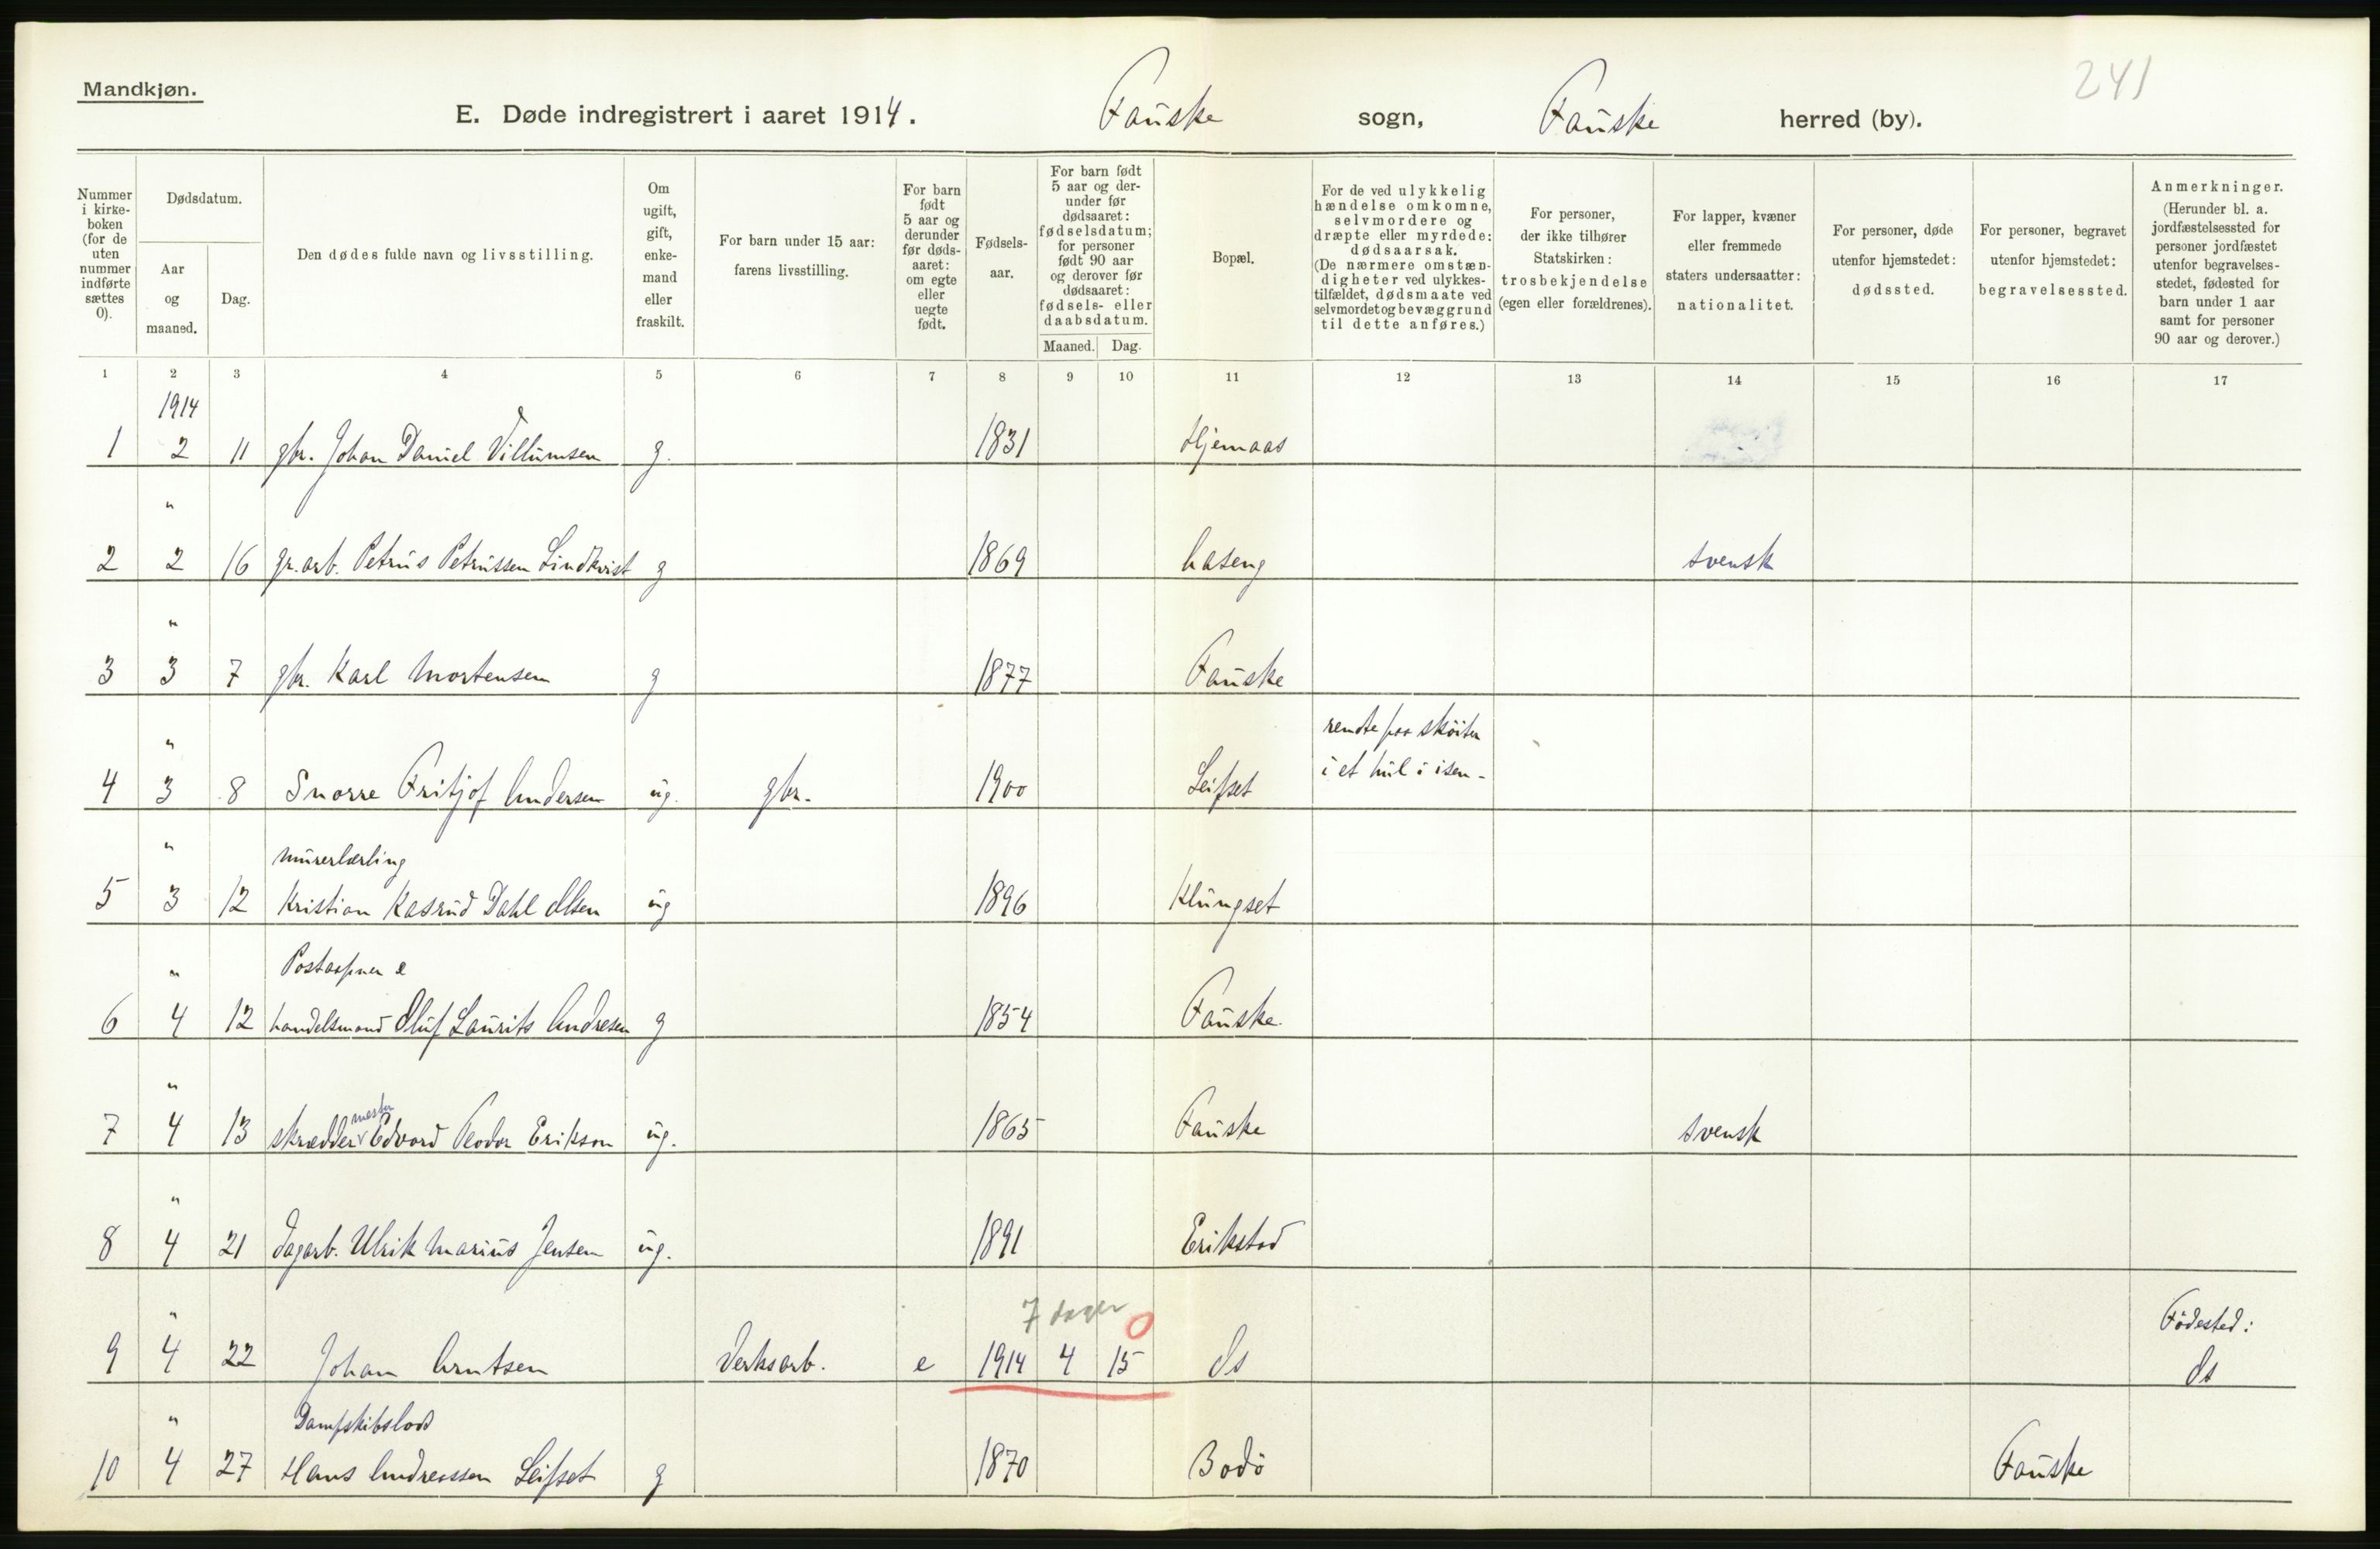 241
Mandkjøn.
E. Døde indregistrert i aaret 1914. Fauske sogn, Fauske herred (by).
Nummer i kirke-boken (for de uten nummer indførte sættes 0).
Dødsdatum.
Aar og maaned.
Dag.
Den dødes fulde navn og livsstilling.
Om ugift, gift, enke-mand eller fraskilt.
For barn under 15 aar: farens livsstilling.
For barn født 5 aar og derunder før døds-aaret: om egte eller uegte født.
Fødsels-aar.
For barn født 5 aar og der-under før dødsaaret: fødselsdatum; for personer født 90 aar og derover før dødsaaret: fødsels- eller daabsdatum.
Maaned. Dag.
Bopæl.
For de ved ulykkelig hændelse omkomne, selvmordere og dræpte eller myrdede: dødsaarsak. (De nærmere omstæn-digheter ved ulykkes-tilfældet, dødsmaate ved selvmordet og bevæggrund til dette anføres.)
For personer, der ikke tilhører Statskirken: trosbekjendelse (egen eller forældrenes).
For lapper, kvæner eller fremmede staters undersaatter: nationalitet.
For personer, døde utenfor hjemstedet: dødssted.
For personer, begravet utenfor hjemstedet: begravelsessted.
Anmerkninger. (Herunder bl. a. jordfæstelsessted for personer jordfæstet utenfor begravelses-stedet, fødested for barn under 1 aar samt for personer 90 aar og derover.)
1 2 3 4 5 6 7 8 9 10 11 12 13 14 15 16 17
1914
1 2 11 gbr. Johan Daniel Villumsen g. 1831 Hjemaas
"
2 2 16 gr.arb. Petrus Petrussen Lindkvist g 1869 Aaseng svensk
"
3 3 7 gbr. Karl Mortensen g 1877 Fauske
" rendte paa skøiter
4 3 8 Snorre Fritjof Andersen ug. gbr. 1900 Leifset i et hul i isen -
" Murerlærling
5 3 12 Kristian Kasrud Dahl Olsen ug 1896 Klungset
" Postaapner &
6 4 12 handelsmand Oluf Laurits Andresen g 1854 Fauske.
"
7 4 13 skræddermester Edvard Teodor Erikson ug. 1865 Fauske svensk
"
8 4 21 Dagarb. Ulrik Marius Jensen ug. 1891 Erikstad
" 7 dager 0 Fødested:
9 4 22 Johan Arntsen Verksarb. e 1914 4 15 ds ds
" Dampskibslods
10 4 27 Hans Andreassen Leifset g 1870 Bodø Fauske